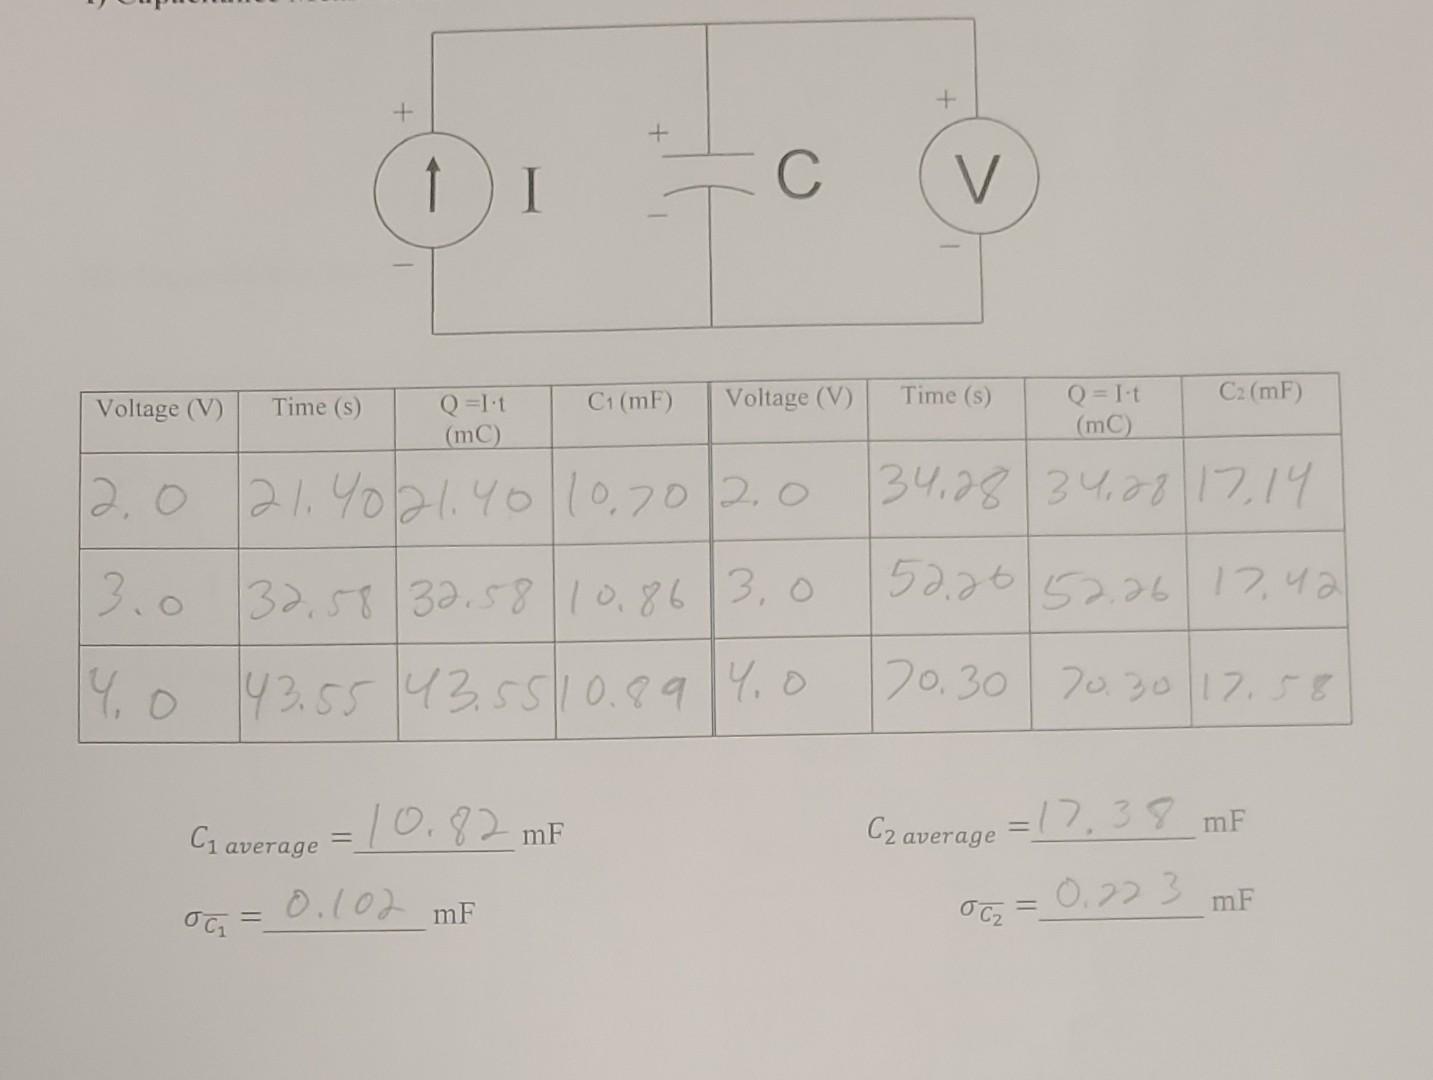 + + +
I C V
− − −
Voltage (V) Time (s) Q =I·t (mC) C1 (mF) Voltage (V) Time (s) Q = I·t (mC) C2 (mF)
2.0 21.40 21.40 10.70 2.0 34.28 34.28 17.14
3.0 32.58 32.58 10.86 3.0 52.26 52.26 17.42
4.0 43.55 43.55 10.89 4.0 70.30 70.30 17.58
C1 average = 10.82 mF C2 average = 17.38 mF
σC1 = 0.102 mF σC2 = 0.223 mF